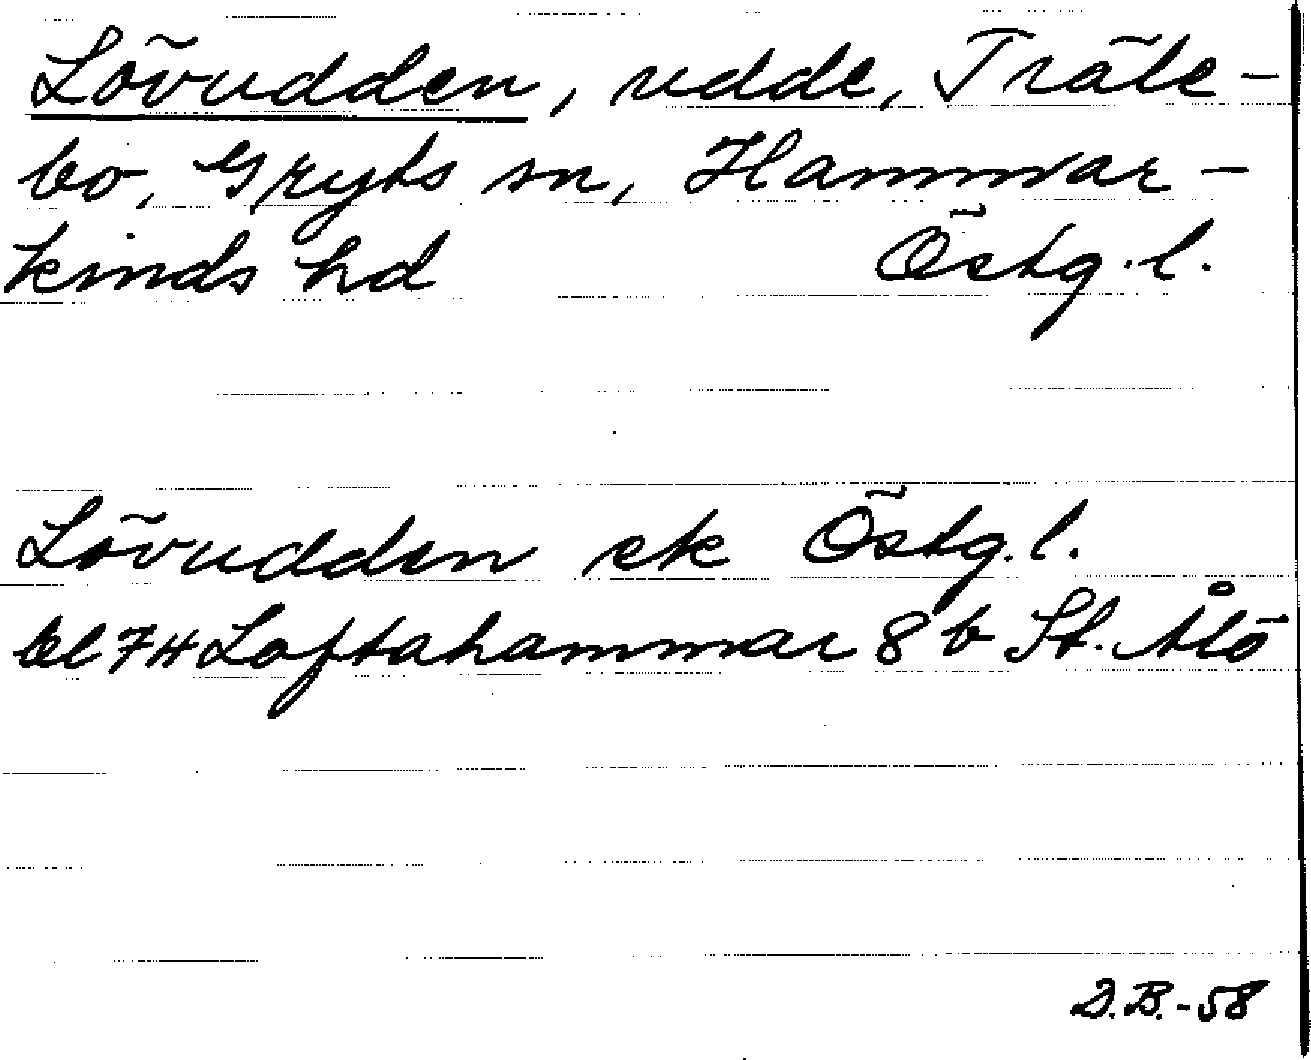 Lövudden, udde, Träte-
bo, Gryts sn, Hammar-
kinds hd Östg.l.
Lövudden ek Östg.l.
bl 7H Loftahammar 8b St. Ålö
D.B.-58